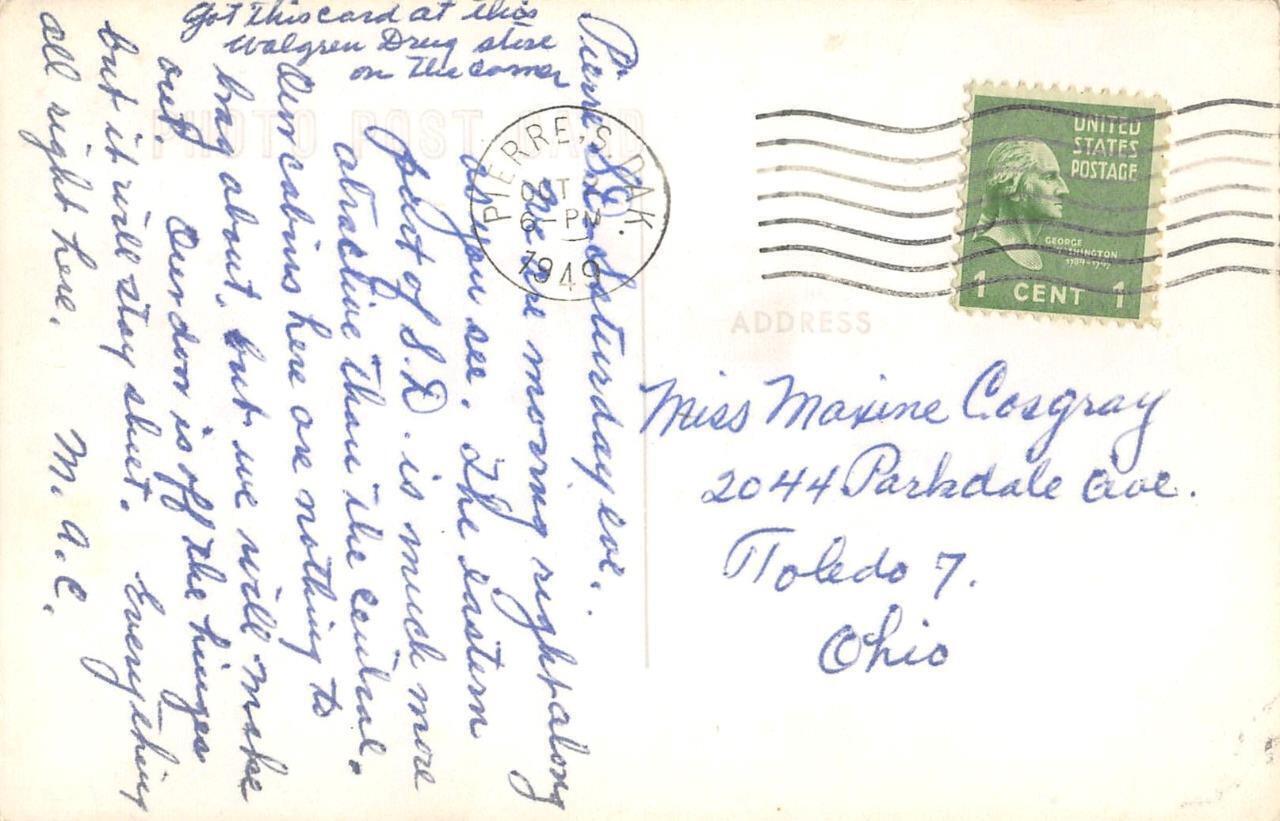 Got this card at this
Walgren Drug store
on the corner
PHOTO POST CARD
Pierre S.D. Saturday eve.
We are moving right along
as you see. The eastern
part of S.D. is much more
attractive than the central.
Our cabins here are nothing to
brag about, but we will make
out. Our door is off the hinges
but it will stay shut. Everything
all right here. M.A.C.
PIERRE, S. DAK.
6-PM
1949
UNITED
STATES
POSTAGE
GEORGE
WASHINGTON
1789-1797
1 CENT 1
ADDRESS
Miss Maxine Cosgray
2044 Parkdale Ave.
Toledo 7.
Ohio